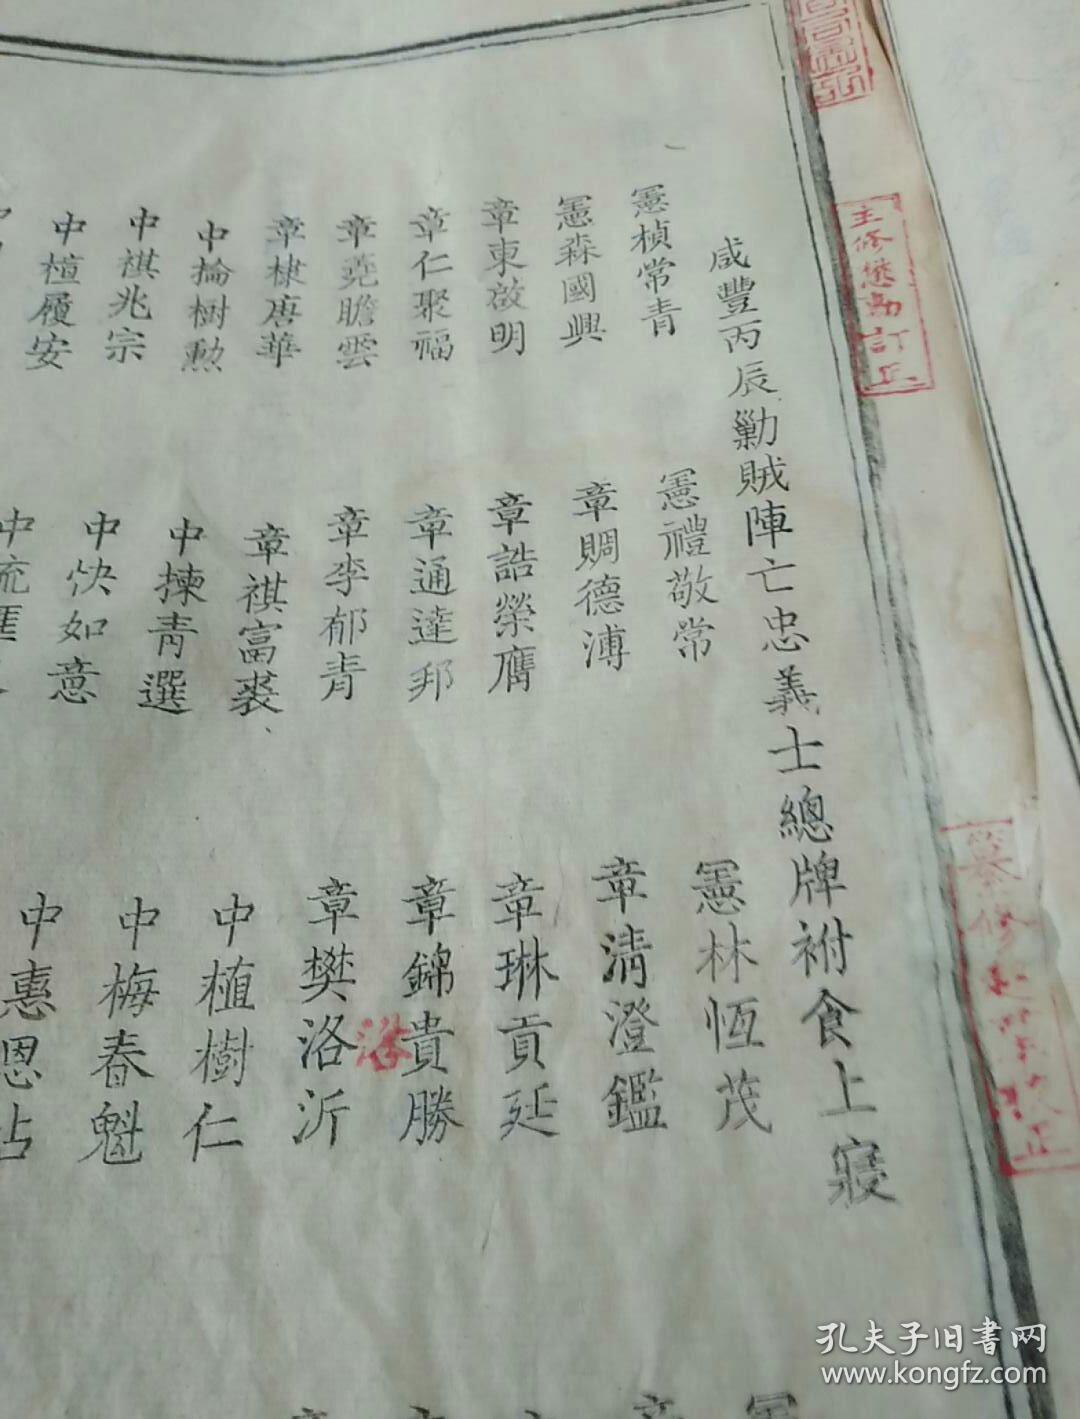 咸豐丙辰勦賊陣亡忠義士總牌祔食上寢
憲楨常青
憲禮敬常
憲林恆茂
憲森國興
章賙德溥
章清澄鑑
章東啟明
章誥榮膺
章琳貢延
章仁聚福
章通達邦
章錦貴勝
章堯瞻雲
章李郁青
章樊洛沂
章棣唐華
章祺富裘
中植樹仁
中掄樹勲
中揀青選
中梅春魁
中祺兆宗
中快如意
中惠恩占
中植履安
中流匯
主修懋勛訂正
孔夫子旧書网
www.kongfz.com